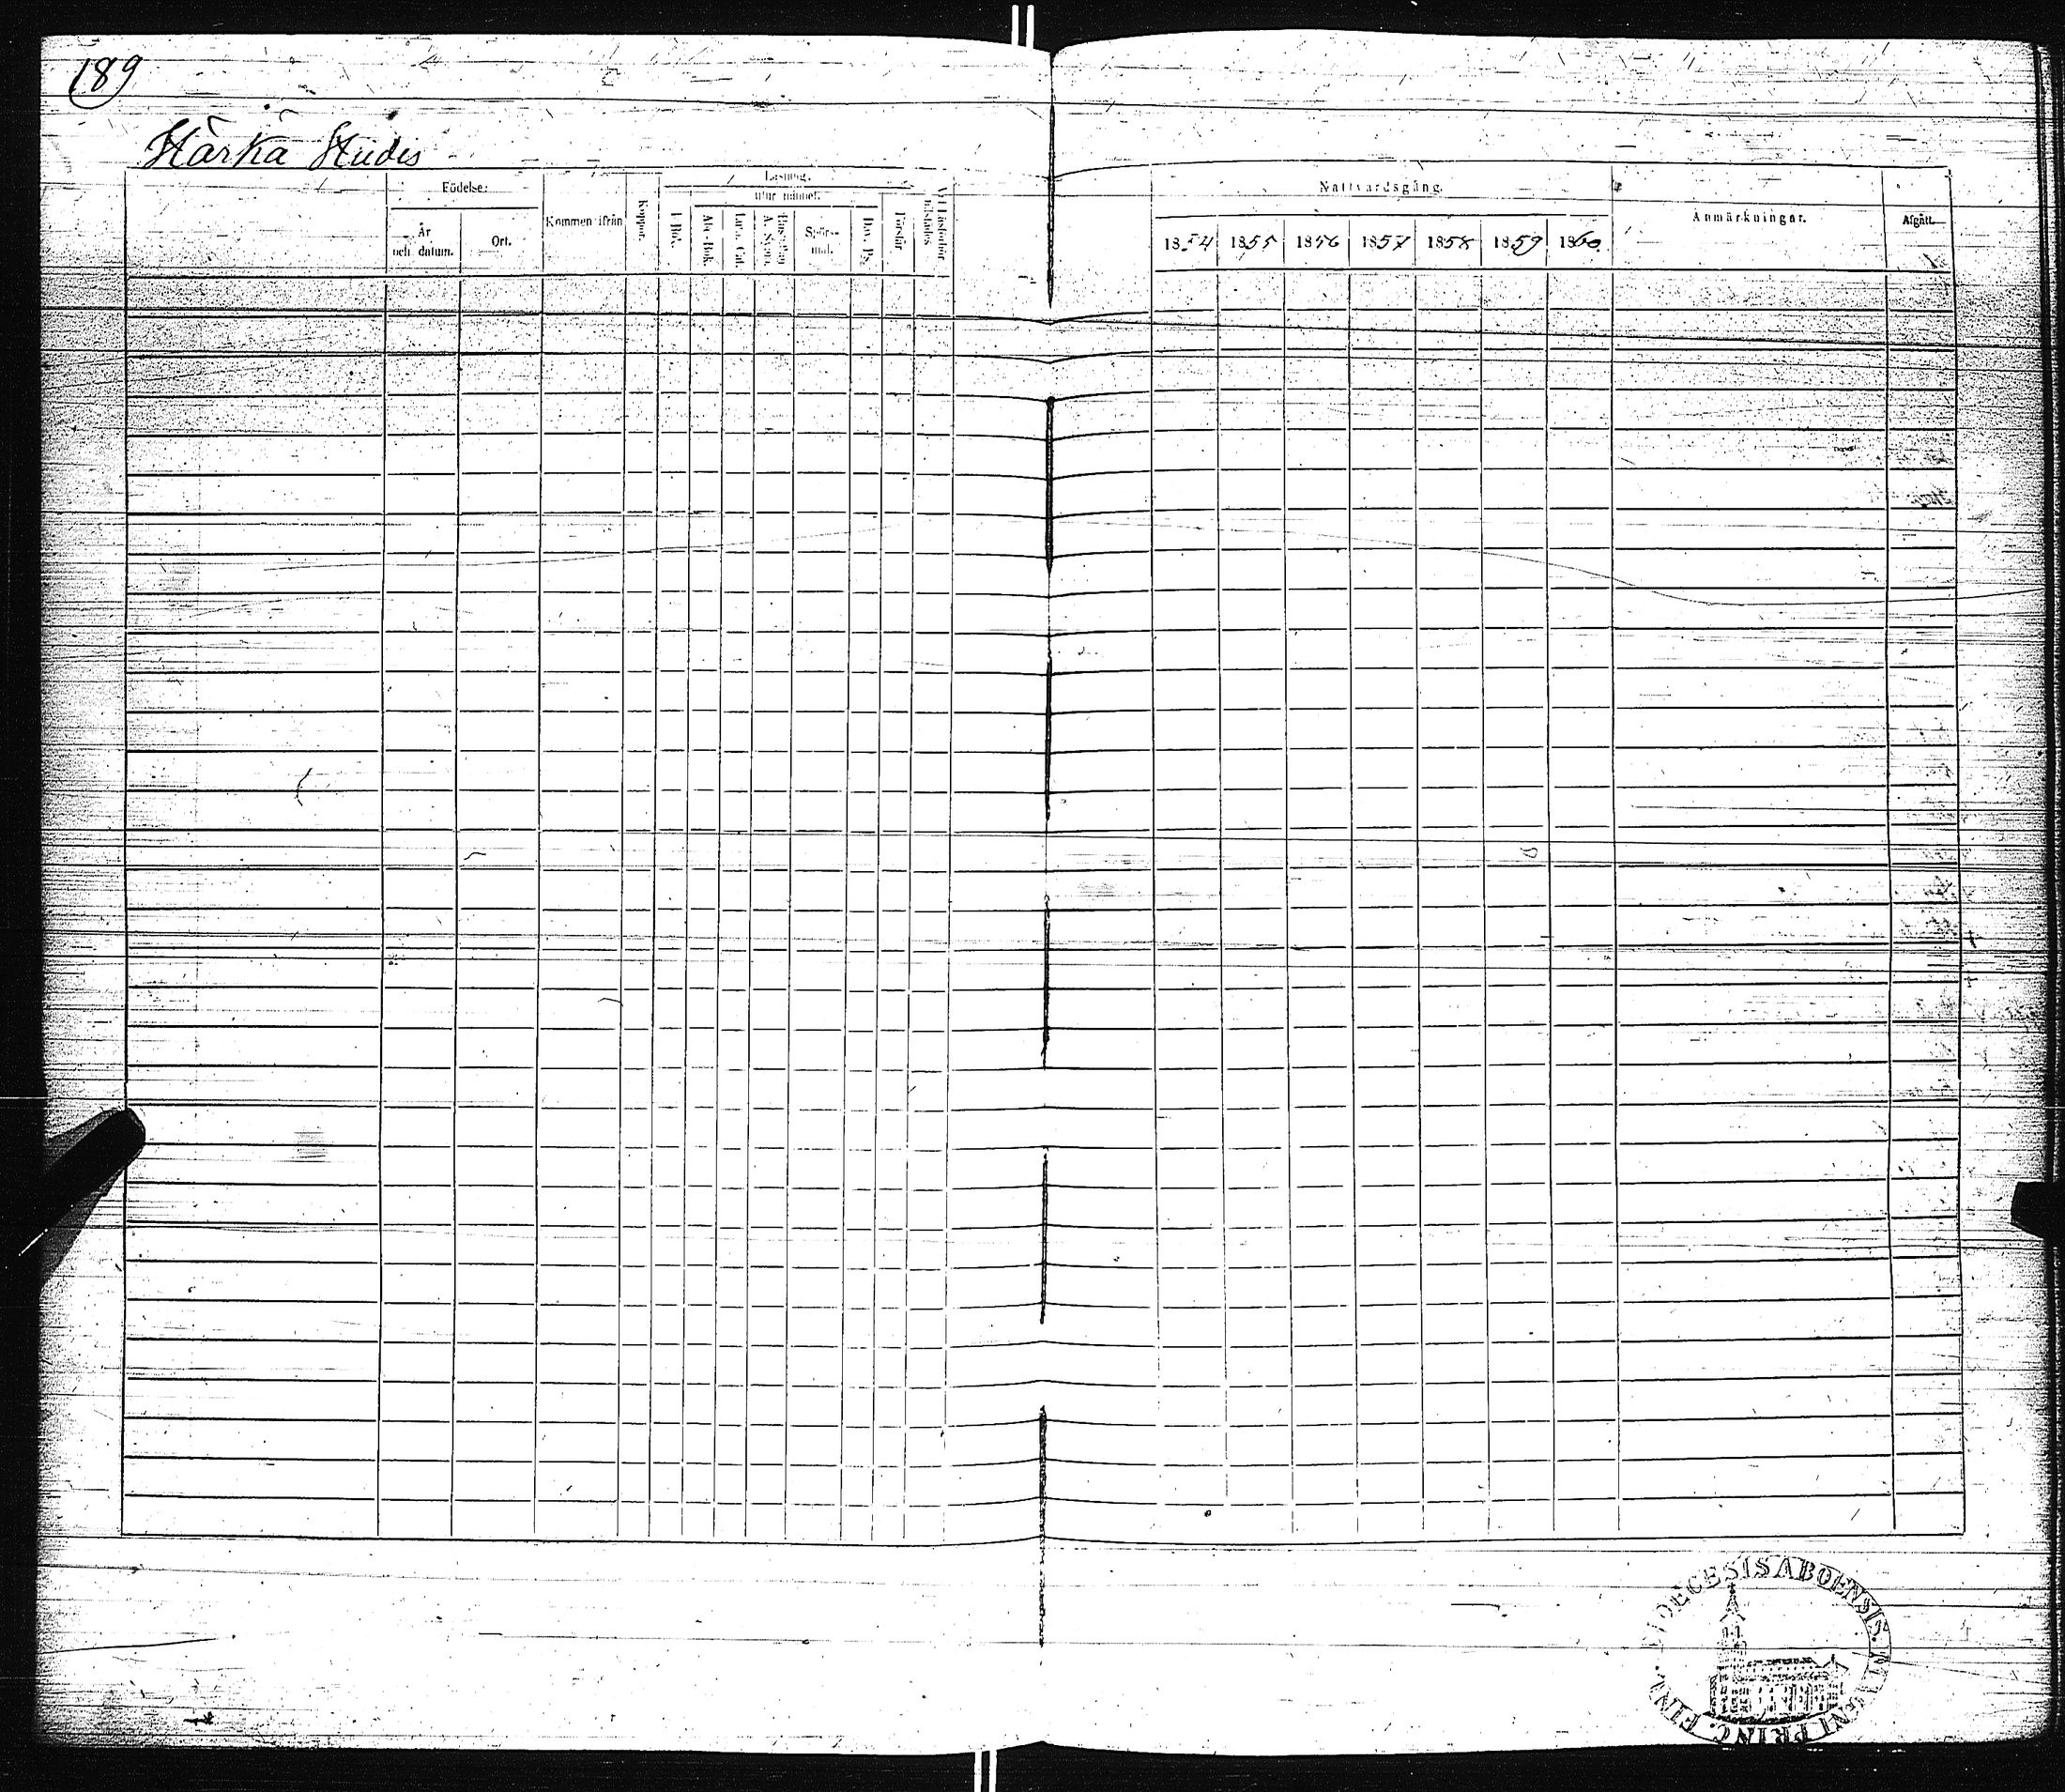 189
Härkä Hiidis
Födelse:
Läsning.
utur minnet.
År och datum.
Ort.
Kommen ifrån
Koppor.
I Bok.
Abc-Bok.
Luth. Cat.
Hustafl. A. Symb.
Spörs-mal.
Dav. Ps.
Förstår.
Vid Läsförhör tillstädes
Nattvardsgång.
1854 1855 1856 1857 1858 1859 1860.
Anmärkningar.
Afgått.
DIOECESIS ABOENSIS. PRINC. FINL.